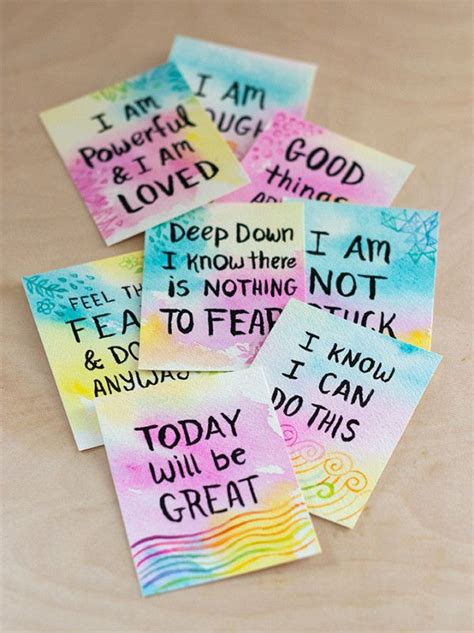 I AM
Powerful
& I AM
LOVED
I AM
GOOD
things
Deep Down
I know there
is NOTHING
TO FEAR
I AM
NOT
FEEL
& DO
ANYWAY
I KNOW
I CAN
DO THIS
TODAY
Will be
GREAT